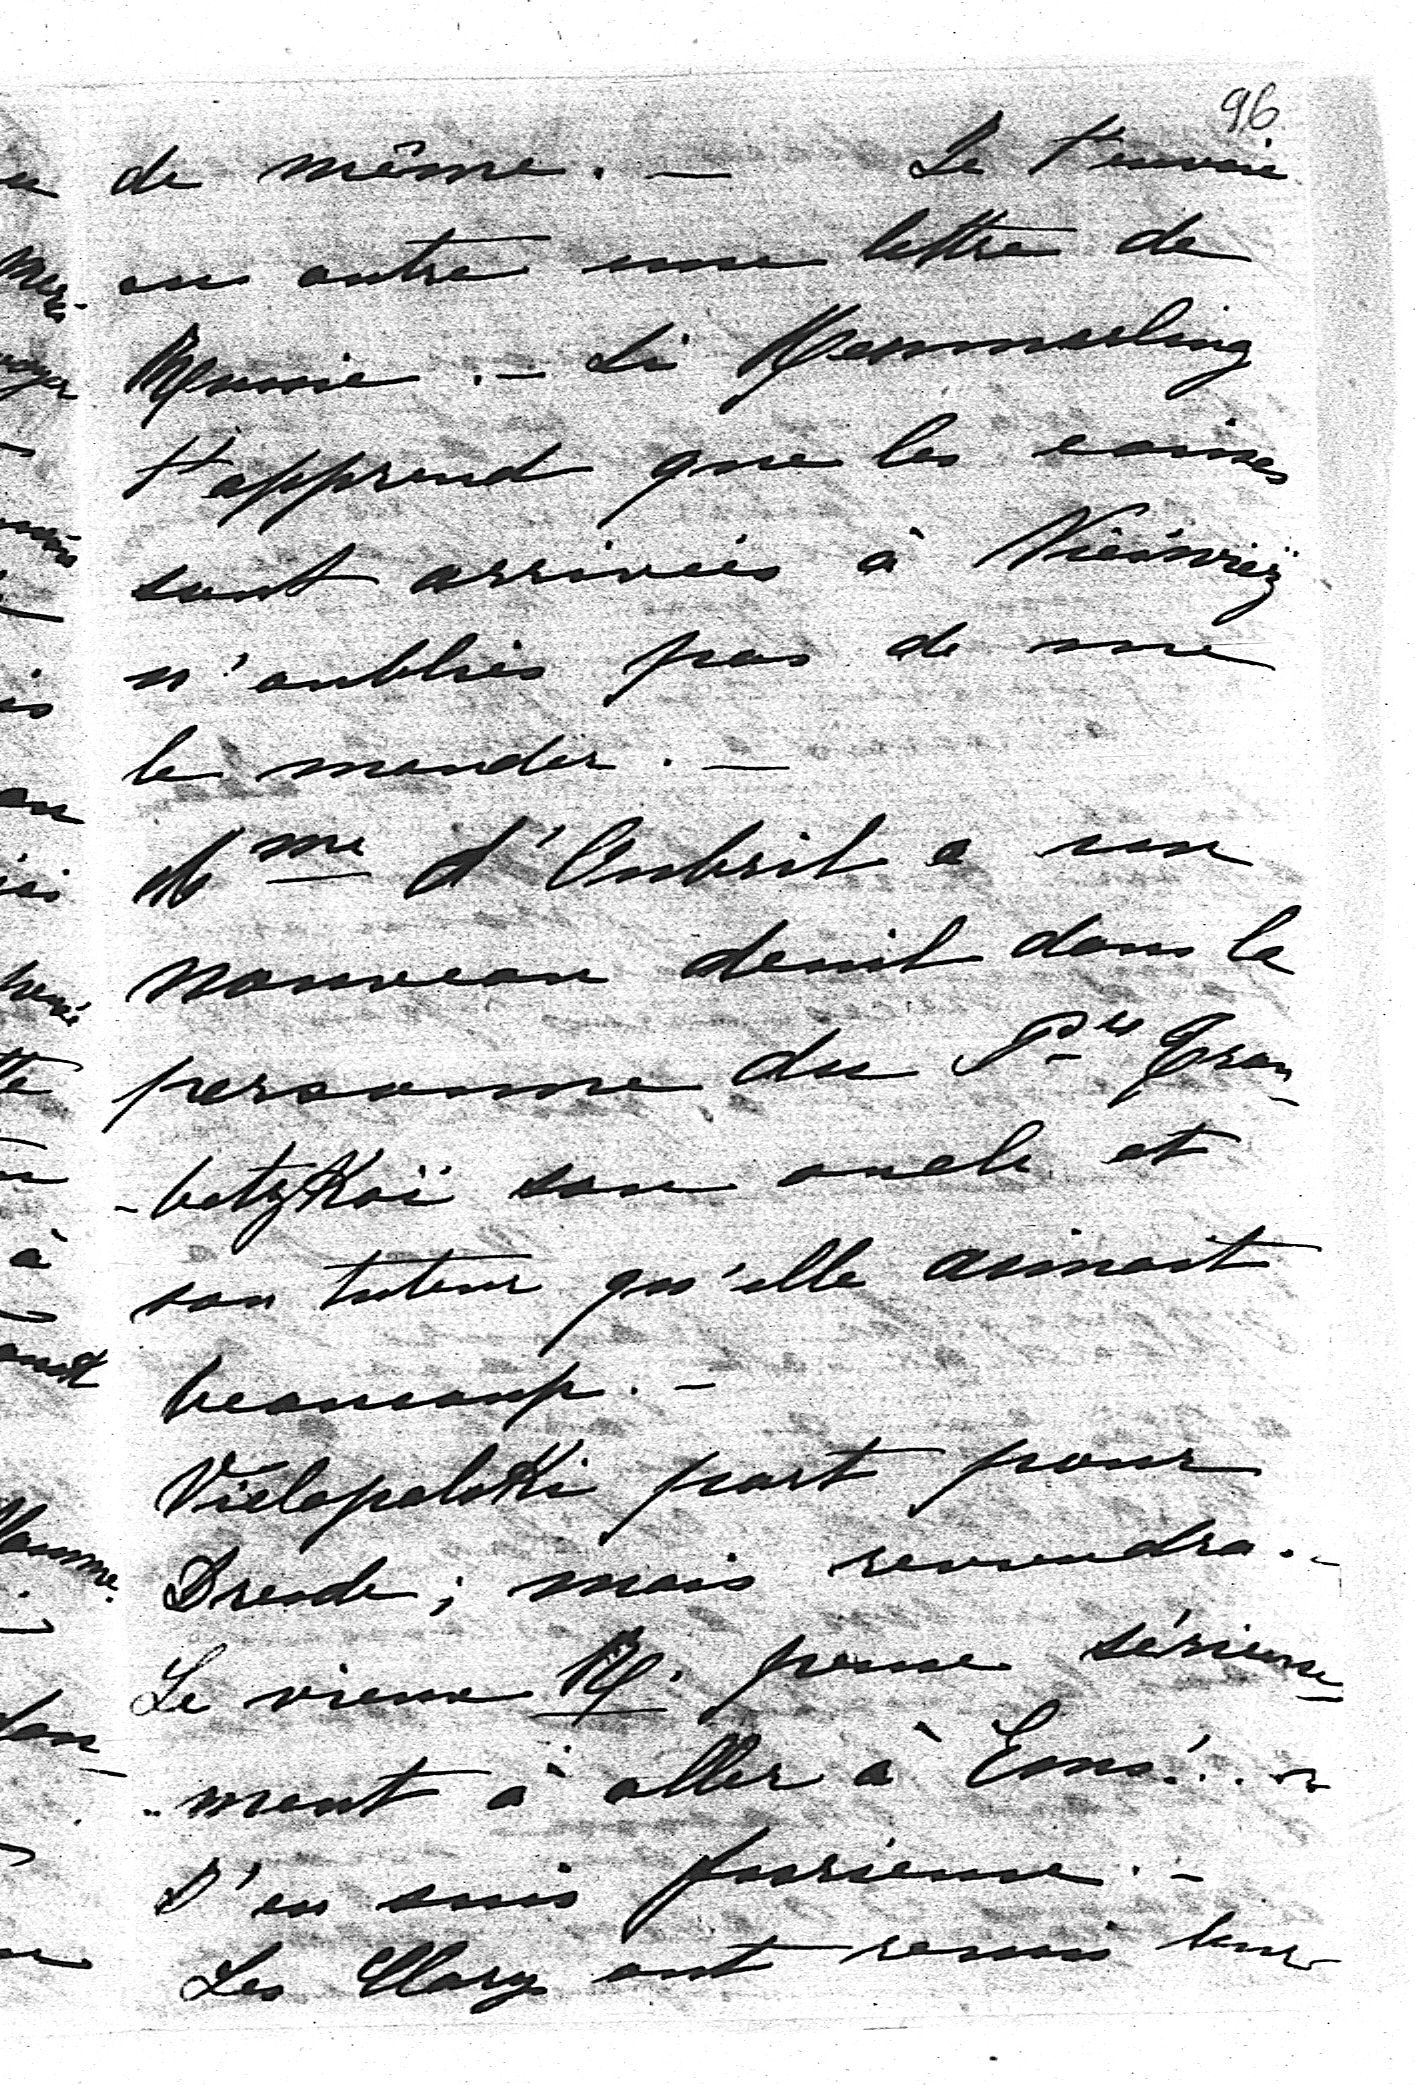 96
de même. — Je t'envoie
en outre une lettre de
Mimie. — Si Kemmerling
t'apprend que les caisses
sont arrivées à Nieśwież
n'oublies pas de me
le mander. —
Mme d'Oubril a un
nouveau deuil dans la
personne du Pce Trou-
-betzkoï son oncle et
son tuteur qu'elle aimait
beaucoup. —
Vielopolski part pour
Dresde; mais reviendra. -
Le vieux R. pense sérieuse-
-ment à aller à Ems!..
J'en suis furieuse. -
Les Clarys ont remis leur